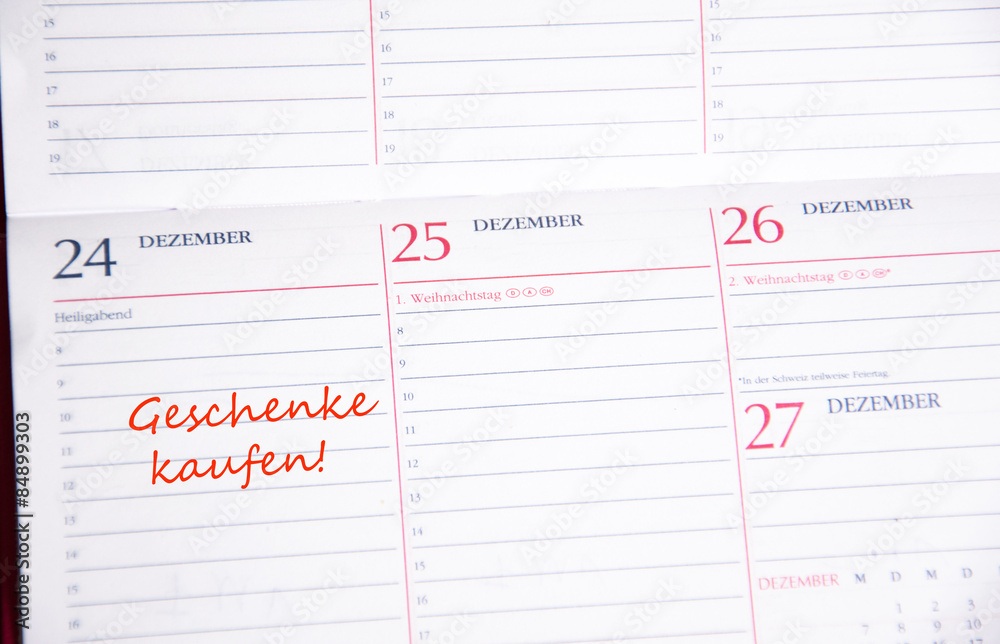 15
16
17
18
19
15
16
17
18
19
15
16
17
18
19
24 DEZEMBER
Heiligabend
8
9
10
Geschenke
11
kaufen!
12
13
14
15
16
25 DEZEMBER
1. Weihnachtstag D A CH
8
9
10
11
12
13
14
15
16
17
26 DEZEMBER
2. Weihnachtstag D A CH*
*In der Schweiz teilweise Feiertag.
27 DEZEMBER
DEZEMBER M D M D
1 2 3
7 8 9 10
Adobe Stock | #84899303